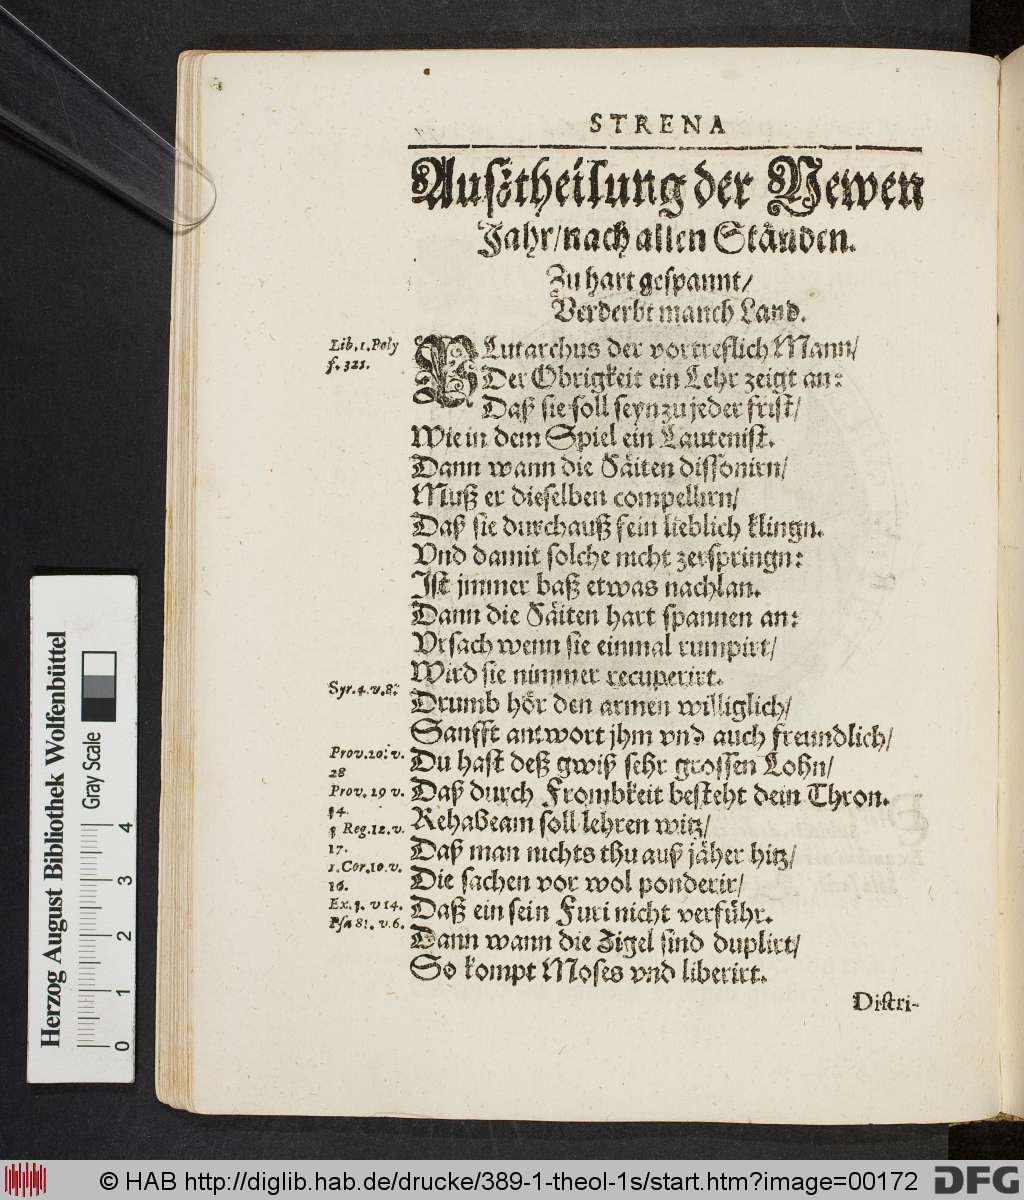 STRENA
Außtheilung der Newen
Jahr/nach allen Ständen.
Zu hart gespannt/
Verderbt manch Land.
Lib. 1. Poly
f. 321.
PLutarchus der vortreflich Mann/
Der Obrigkeit ein Lehr zeigt an:
Daß sie soll seyn zu jeder frist/
Wie in dem Spiel ein Lautenist.
Dann wann die Säiten dissonirn/
Muß er dieselben compellirn/
Daß sie durchauß fein lieblich klingn.
Vnd damit solche nicht zerspringn:
Ist jmmer baß etwas nachlan.
Dann die Säiten hart spannen an:
Vrsach wenn sie einmal rumpirt/
Wird sie nimmer recuperirt.
Syr. 4. v. 8.
Drumb hör den armen williglich/
Sanfft antwort jhm vnd auch freundlich/
Prov. 20. v.
28
Du hast deß gwiß sehr grossen Lohn/
Prov. 29 v.
14.
Daß durch Frombkeit besteht dein Thron.
1 Reg. 12. v.
17.
Rehabeam soll lehren witz/
Daß man nichts thu auß jäher hitz/
1. Cor. 10. v.
16.
Die sachen vor wol ponderir/
Ex. 3. v 14.
Daß ein sein Furi nicht verführ.
Psa 81. v. 6.
Dann wann die Zigel sind duplirt/
So kompt Moses vnd liberirt.
Distri-
Herzog August Bibliothek Wolfenbüttel
Gray Scale
0 1 2 3 4
© HAB http://diglib.hab.de/drucke/389-1-theol-1s/start.htm?image=00172
DFG